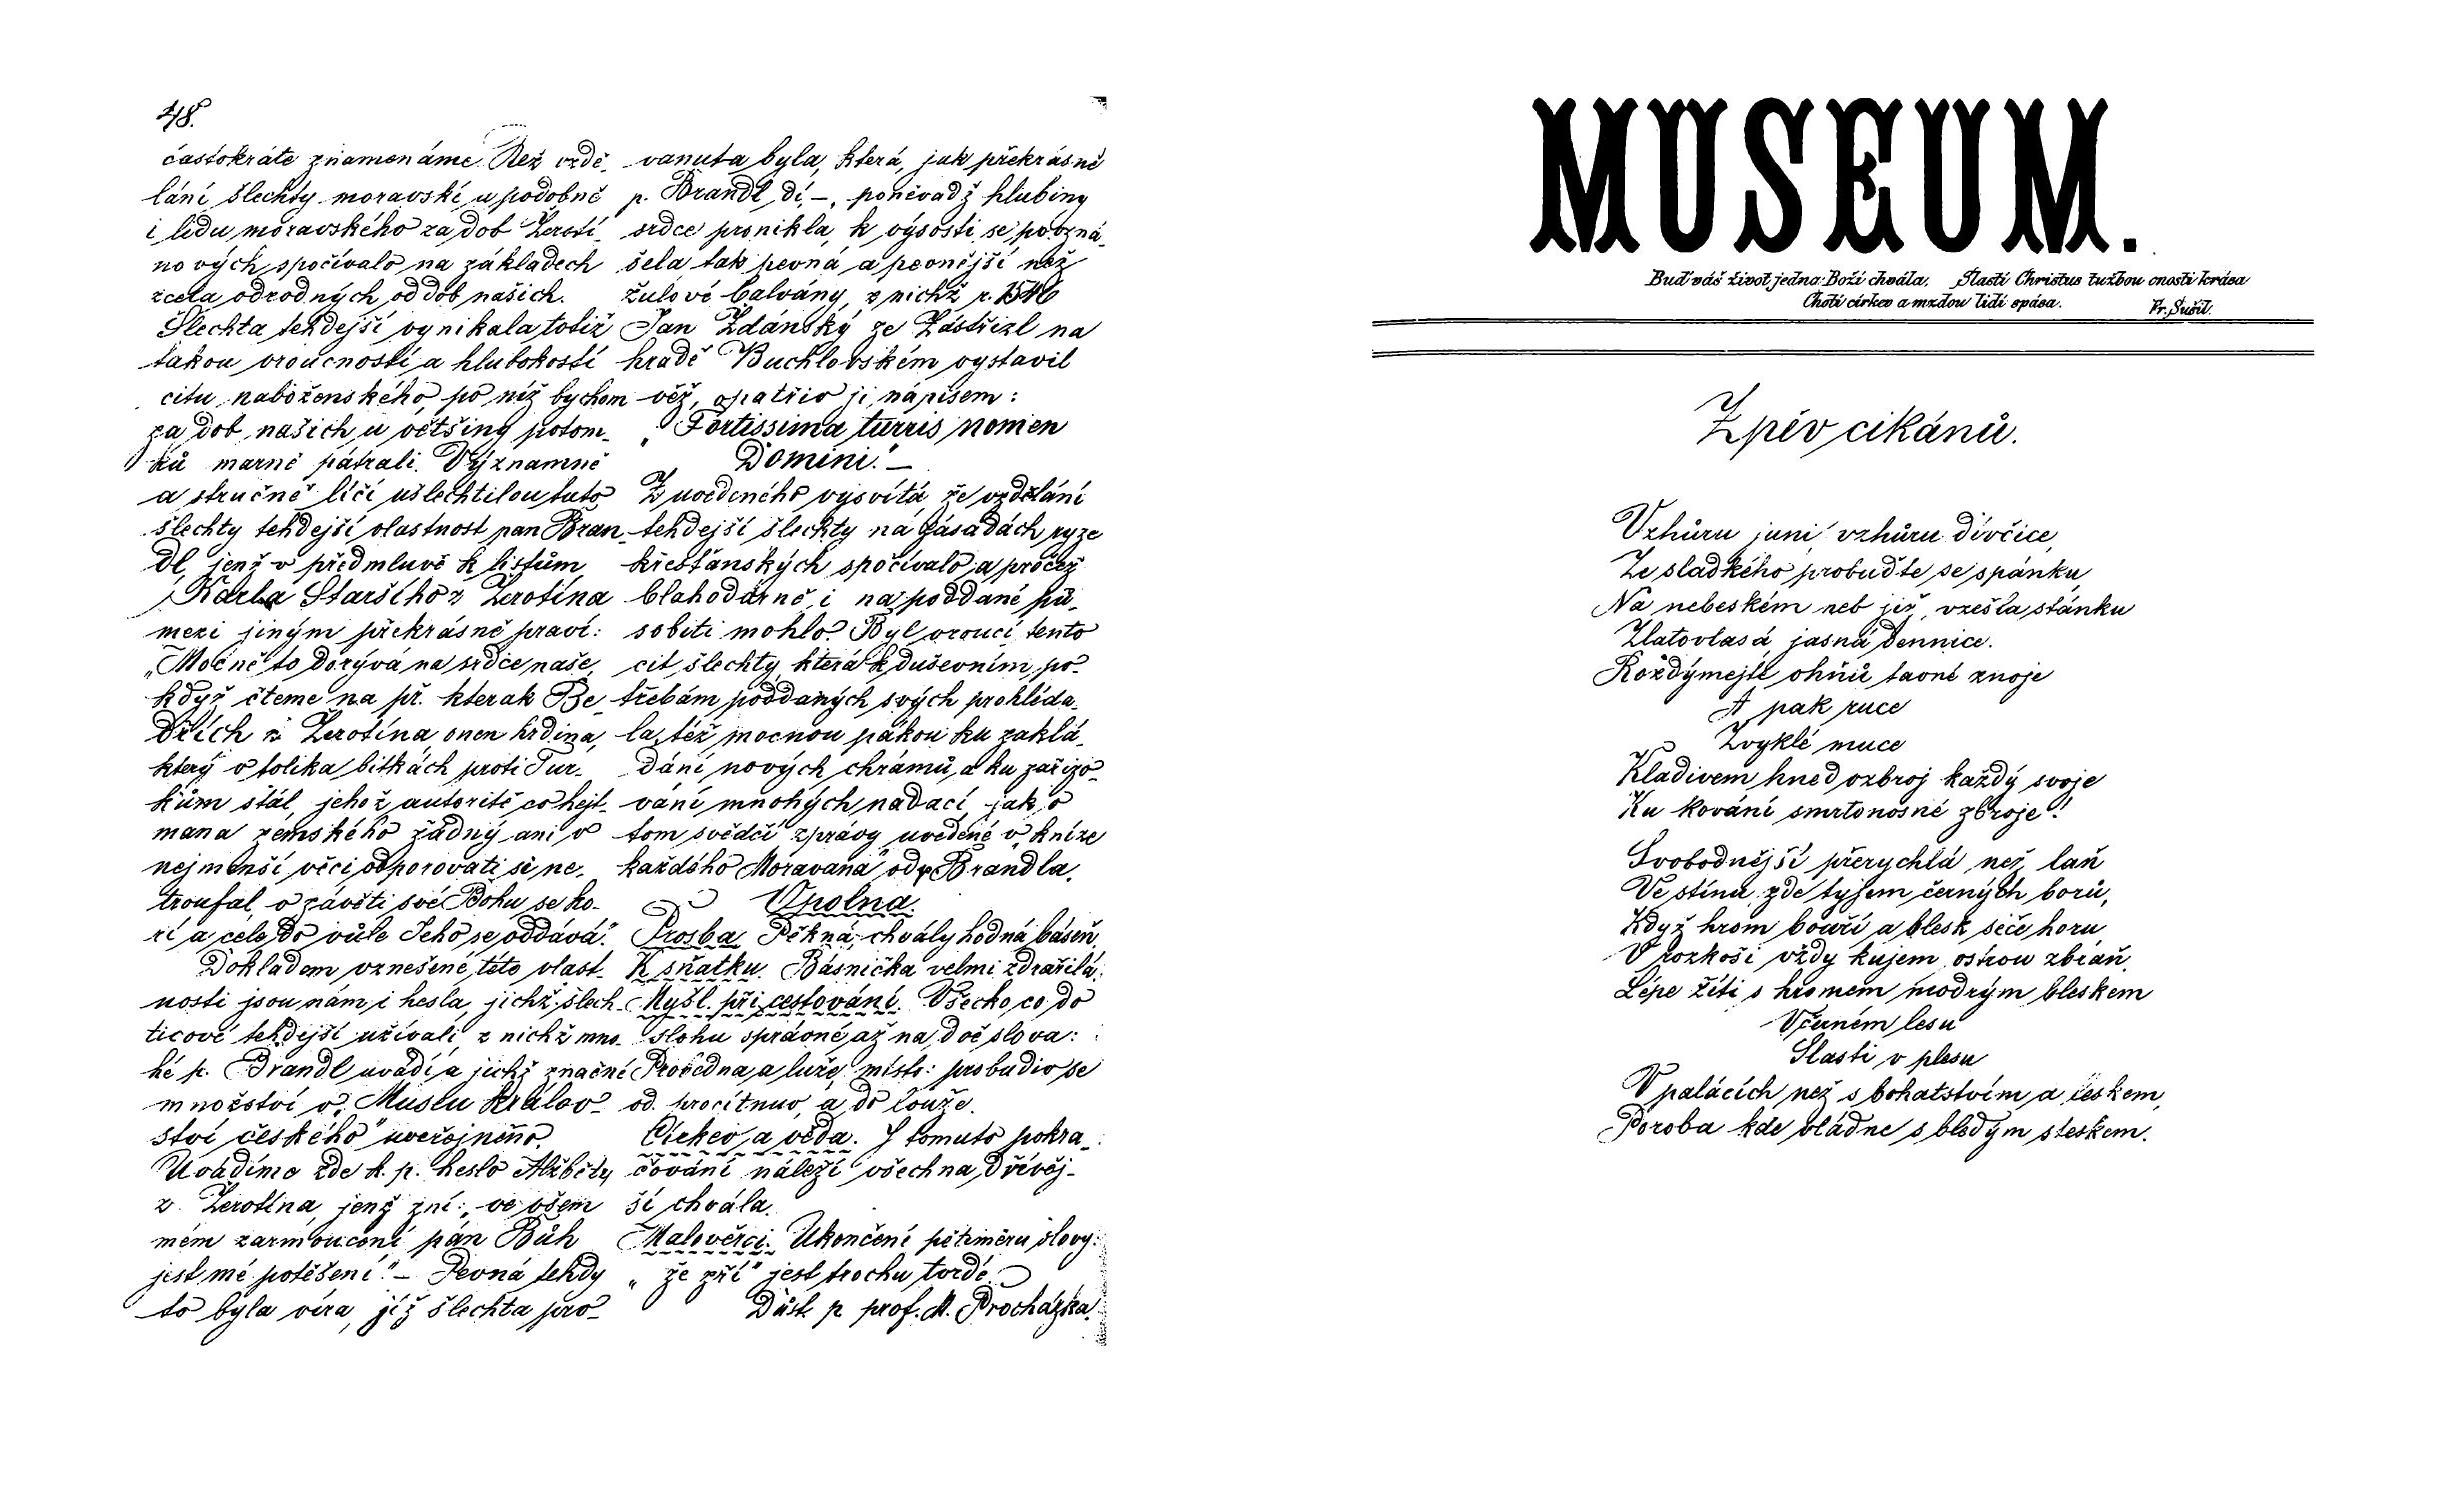 48.
častokráte znamenáme. Než vzdě-
lání šlechty moravské, u podobně
i lidu moravského za dob Žerotí-
nových, spočívalo na základech
zcela odrodných od dob našich.
Šlechta tehdejší vynikala totiž
takou vroucností a hlubokostí
citu náboženského, po níž bychom
za dob našich u většiny potom-
ků marně pátrali. Významně
a stručně líčí ušlechtilou tuto
šlechty tehdejší vlastnost pan Bran-
dl, jenž v předmluvě k listům
Karla Staršího z Žerotína
mezi jiným překrásně praví:
„Mocně to dorývá na srdce naše,
když čteme na př. kterak Be-
dřich z Žerotína, onen hrdina,
který v tolika bitkách proti Tur-
kům stál, jehož autoritě co hejt-
mana zemského žádný ani v
nejmenší věci odporovati si ne-
troufal v závěti své Bohu se ko-
ří a cele do vůle Jeho se oddává."
Dokladem vznešené této vlast-
nosti jsou nám i hesla, jichž šlech-
ticové tehdejší užívali, z nichž mno-
hé p. Brandl uvádí a jichž značné
množství v „Museu králov-
ství českého" uveřejněno.
Uvádíme zde k. p. heslo Alžběty
z Žerotína, jenž zní: „ve všem
mém zarmoucení pán Bůh
jest mé potěšení." – Pevná tehdy
to byla víra, jíž šlechta pro-
vanuta byla, která, jak překrásně
p. Brandl dí, –, poněvadž hlubiny
srdce pronikla, k výsosti se povzná-
šela tak pevná a pevnější než
žulové balvány, z nichž r. 1546
Jan Zdánský ze Zástřizl na
hradě Buchlovském vystavil
věž, opatřiv ji nápisem:
„Fortissima turris nomen
Domini." –
Z uvedeného vysvítá, že vzdělání
tehdejší šlechty na zásadách ryze
křesťanských spočívalo, a pročež
blahodárně i na poddané pů-
sobiti mohlo. Byl vroucí tento
cit šlechty, která k duševním po-
třebám poddaných svých prohléda-
la, též mocnou pákou ku zaklá-
dání nových chrámů, a ku zařizo-
vání mnohých nadací, jak o
tom svědčí zprávy uvedené v „knize
každého Moravana" od p. Brandla.
Vpolna.
Prosba. Pěkná, chvály hodná báseň.
K sňatku. Básnička velmi zdařilá.
Myšl. při cestování. Všecko, co do
slohu správné, až na dvě slova:
Provedna, a luže, místo: probudiv se
od. procítnuv, a do louže.
Církev a věda. I tomuto pokra-
čování náleží všechna dřívěj-
ší chvála.
Malověrci. Ukončení pětiměru slovy:
„že zří" jest trochu tvrdé.
Důst. p. prof. M. Procházka.
MUSEUM.
Buď váš život jedna Boží chvála, Slastí Christus tužbou cnosti krása
Chotí církev a mzdou lidí spása.
Fr. Sušil.
Zpěv cikánů.
Vzhůru juni vzhůru dívčice,
Ze sladkého probuďte se spánku,
Na nebeském neb již vzešla stánku
Zlatovlasá, jasná dennice.
Rozdýmejte ohňů tavné znoje
A pak ruce
Zvyklé muce
Kladivem hned ozbroj každý svoje
Ku kování smrtonosné zbroje!
Svobodnější přerychlá než laň
Ve stínu zde tyjem černých borů,
Když hrom bouří a blesk seče horu
V rozkoši vždy kujem ostrou zbraň.
Lépe žíti s hromem modrým bleskem
V černém lesu
Slasti v plesu
V palácích než s bohatstvím a leskem,
Poroba kde vládne s bledým steskem.